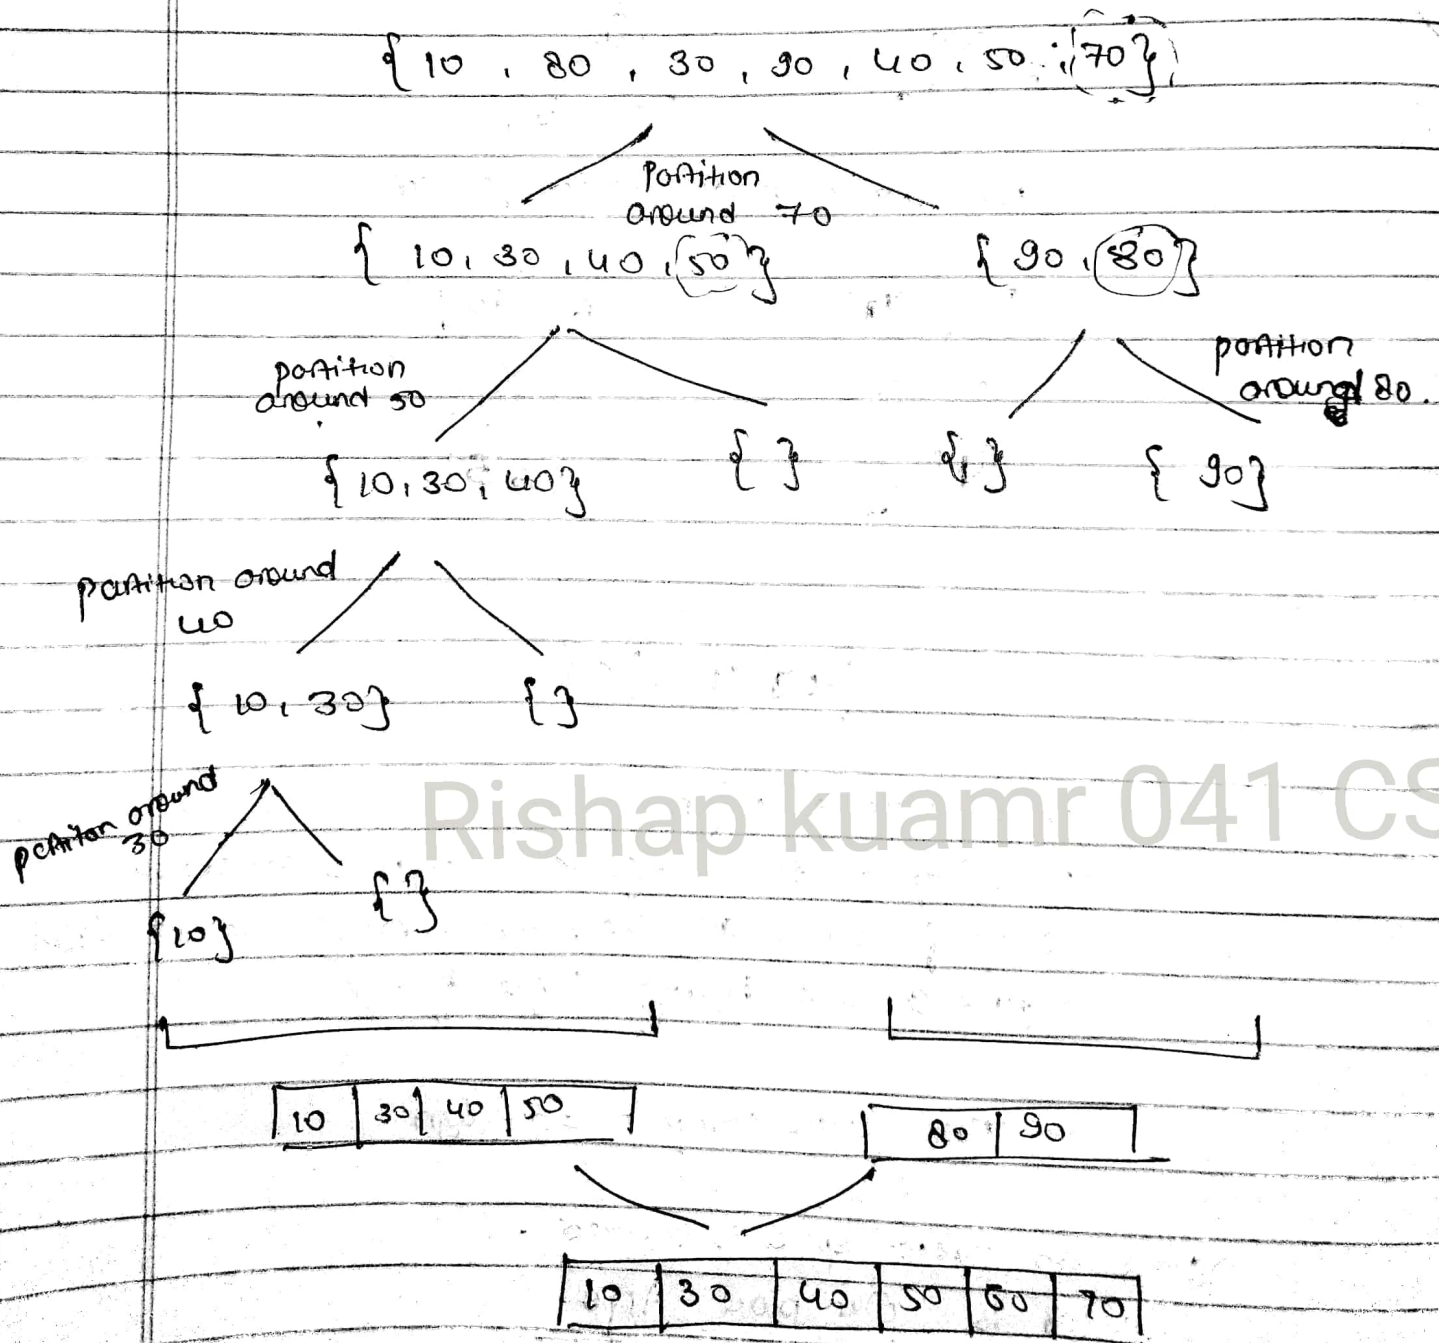 { 10 , 80 , 30 , 90 , 40 , 50 , 70 }
Partition
around 70
{ 10, 30, 40, 50 } { 90, 80 }
partition
around 50
partition
around 80.
{ 10, 30, 40 } { } { } { 90 }
partition around
40
{ 10, 30 } { }
partiton around
30
{ 10 } { }
Rishap kuamr 041 CS
10 30 40 50
80 90
10 30 40 50 60 70